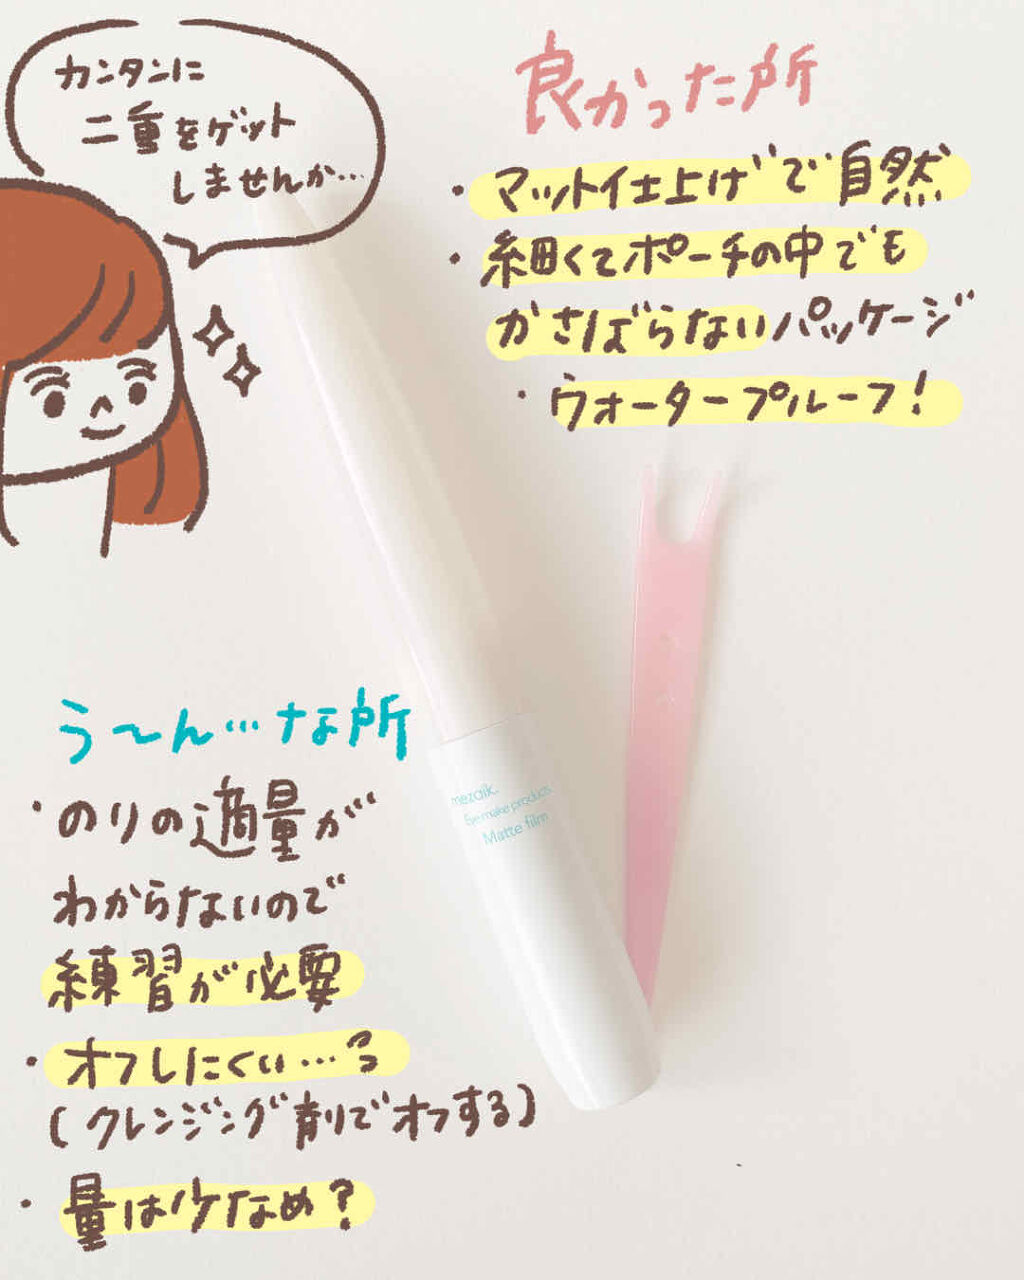 カンタンに
二重をゲット
しませんか…
良かった所
・マット仕上げで自然
・細くてポーチの中でも
かさばらないパッケージ
・ウォータープルーフ！
う〜ん…な所
・のりの適量が
わからないので
練習が必要
・オフしにくい…？
(クレンジング剤でオフする)
・量は少なめ？
mezaik.
Eye make products
Matte film